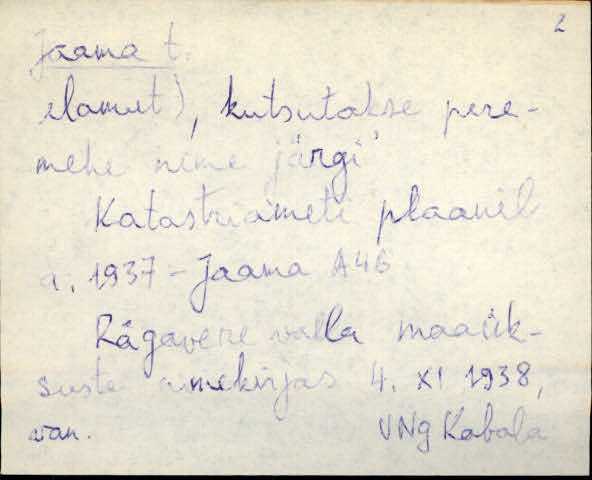 2
Jaama t.
elamut), kutsutakse pere-
mehe nime järgi
Katastriameti plaanil
a. 1937 - Jaama A46
Rägavere valla maaük-
suste nimekirjas 4. XI 1938,
VNg Kabala